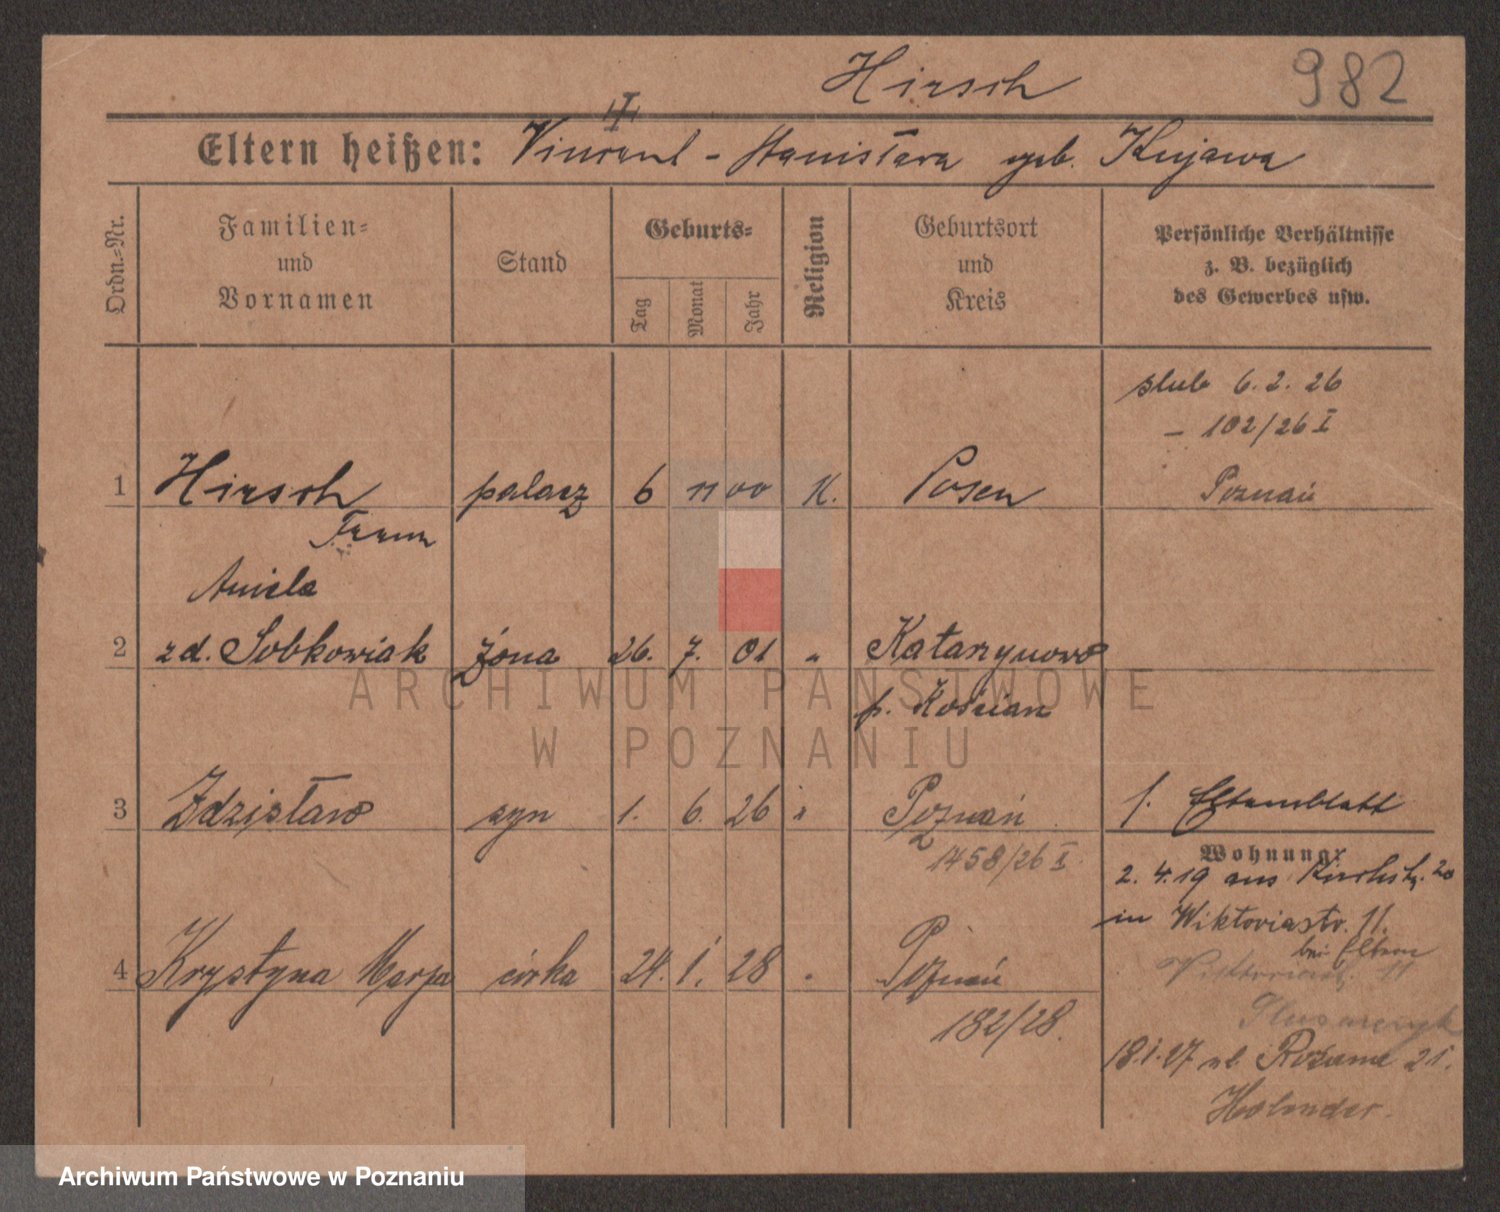 Hirsch 982
II
Eltern heißen: Vincent - Stanisława geb. Kujawa
Ordn.-Nr.
Familien-
und
Vornamen
Stand
Geburts-
Tag
Monat
Jahr
Religion
Geburtsort
und
Kreis
Persönliche Verhältnisse
z. B. bezüglich
des Gewerbes usw.
ślub 6.2.26
- 102/26 I
Poznań
1 Hirsch palacz 6 11 00 K. Posen
Franz
Aniela
2 zd. Sobkowiak żona 26. 7. 01 " Katarzynowo
p. Kościan
3 Zdzisław syn 1. 6. 26 " Poznań
1458/26 I
f. Elternblatt
Wohnung:
2.4.19 aus Kirchstr. 20
in Wiktoriastr. 11.
bei Eltern
4 Krystyna Marja córka 24. 1. 28 " Poznań
182/28.
Viktoriastr. 11
18.1.27 ul. 21.
ARCHIWUM PAŃSTWOWE
W POZNANIU
Archiwum Państwowe w Poznaniu